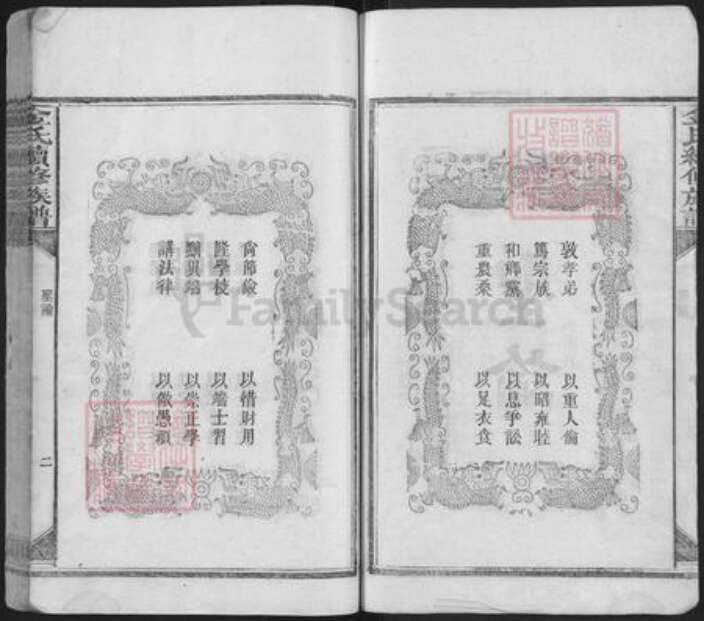 金氏續修族譜
敦孝弟 以重人倫
篤宗族 以昭雍睦
和鄉黨 以息爭訟
重農桑 以足衣食
尚節儉 以惜財用
隆學校 以端士習
黜異端 以崇正學
講法律 以儆愚頑
金氏續修族譜
聖諭
二
FamilySearch